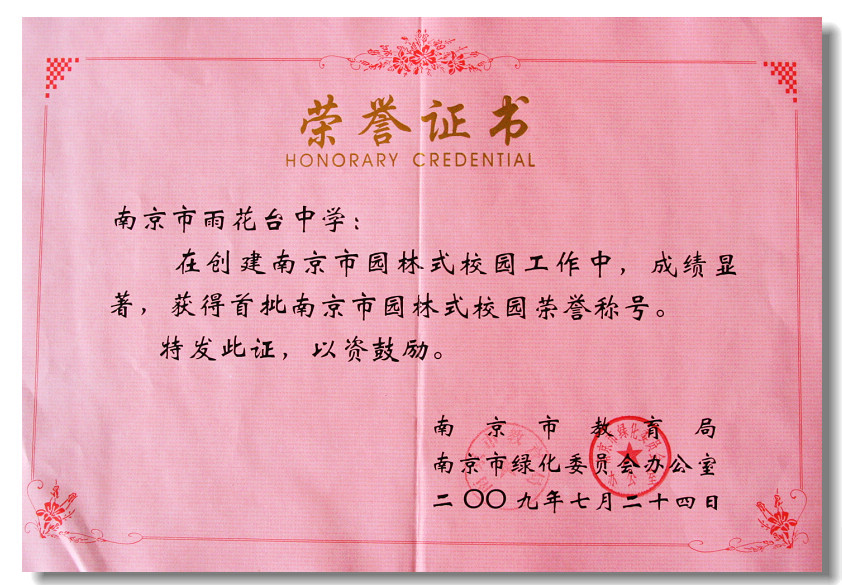 荣誉证书
HONORARY CREDENTIAL
南京市雨花台中学：
在创建南京市园林式校园工作中，成绩显
著，获得首批南京市园林式校园荣誉称号。
特发此证，以资鼓励。
南京市教育局
南京市绿化委员会办公室
二〇〇九年七月二十四日